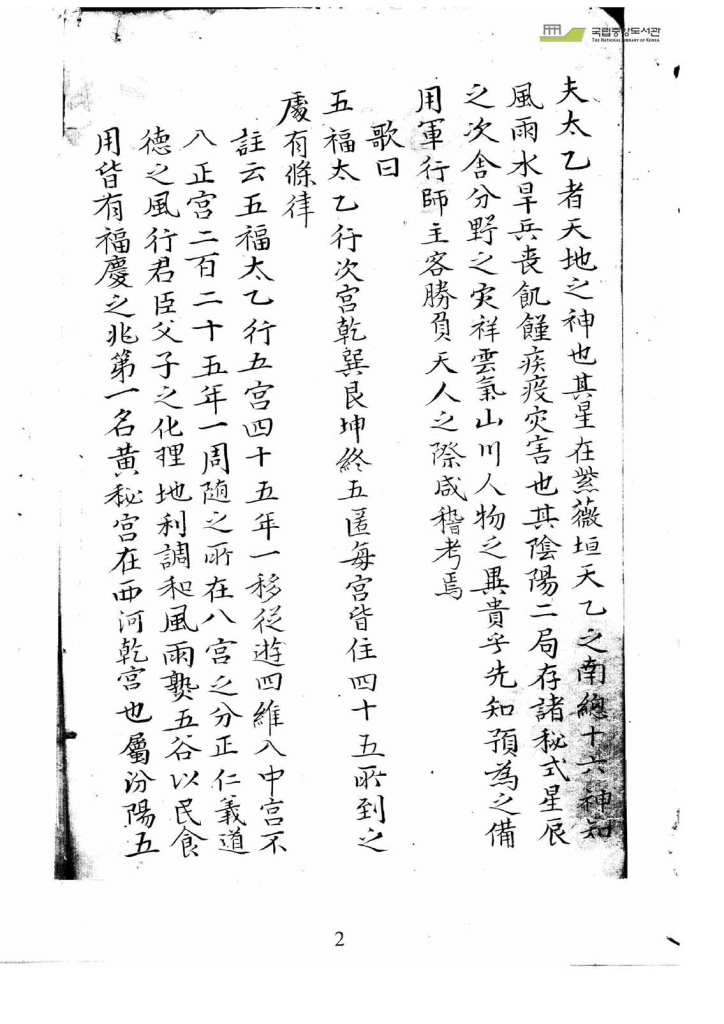 국립중앙도서관
THE NATIONAL LIBRARY OF KOREA
夫太乙者天地之神也其星在紫薇垣天乙之南總十六神知
風雨水旱兵喪飢饉疾疫灾害也其陰陽二局存諸秘式星辰
之次舍分野之灾祥雲氣山川人物之異貴乎先知預為之備
用軍行師主客勝負天人之際咸稽考焉
歌曰
五福太乙行次宮乾巽艮坤終五匿每宮皆住四十五所到之
處有條律
註云五福太乙行五宮四十五年一移從遊四維入中宮不
入正宮二百二十五年一周随之所在八宮之分正仁義道
德之風行君臣父子之化理地利調和風雨熟五谷以民食
用皆有福慶之兆第一名黃秘宮在西河乾宮也屬汾陽五
2